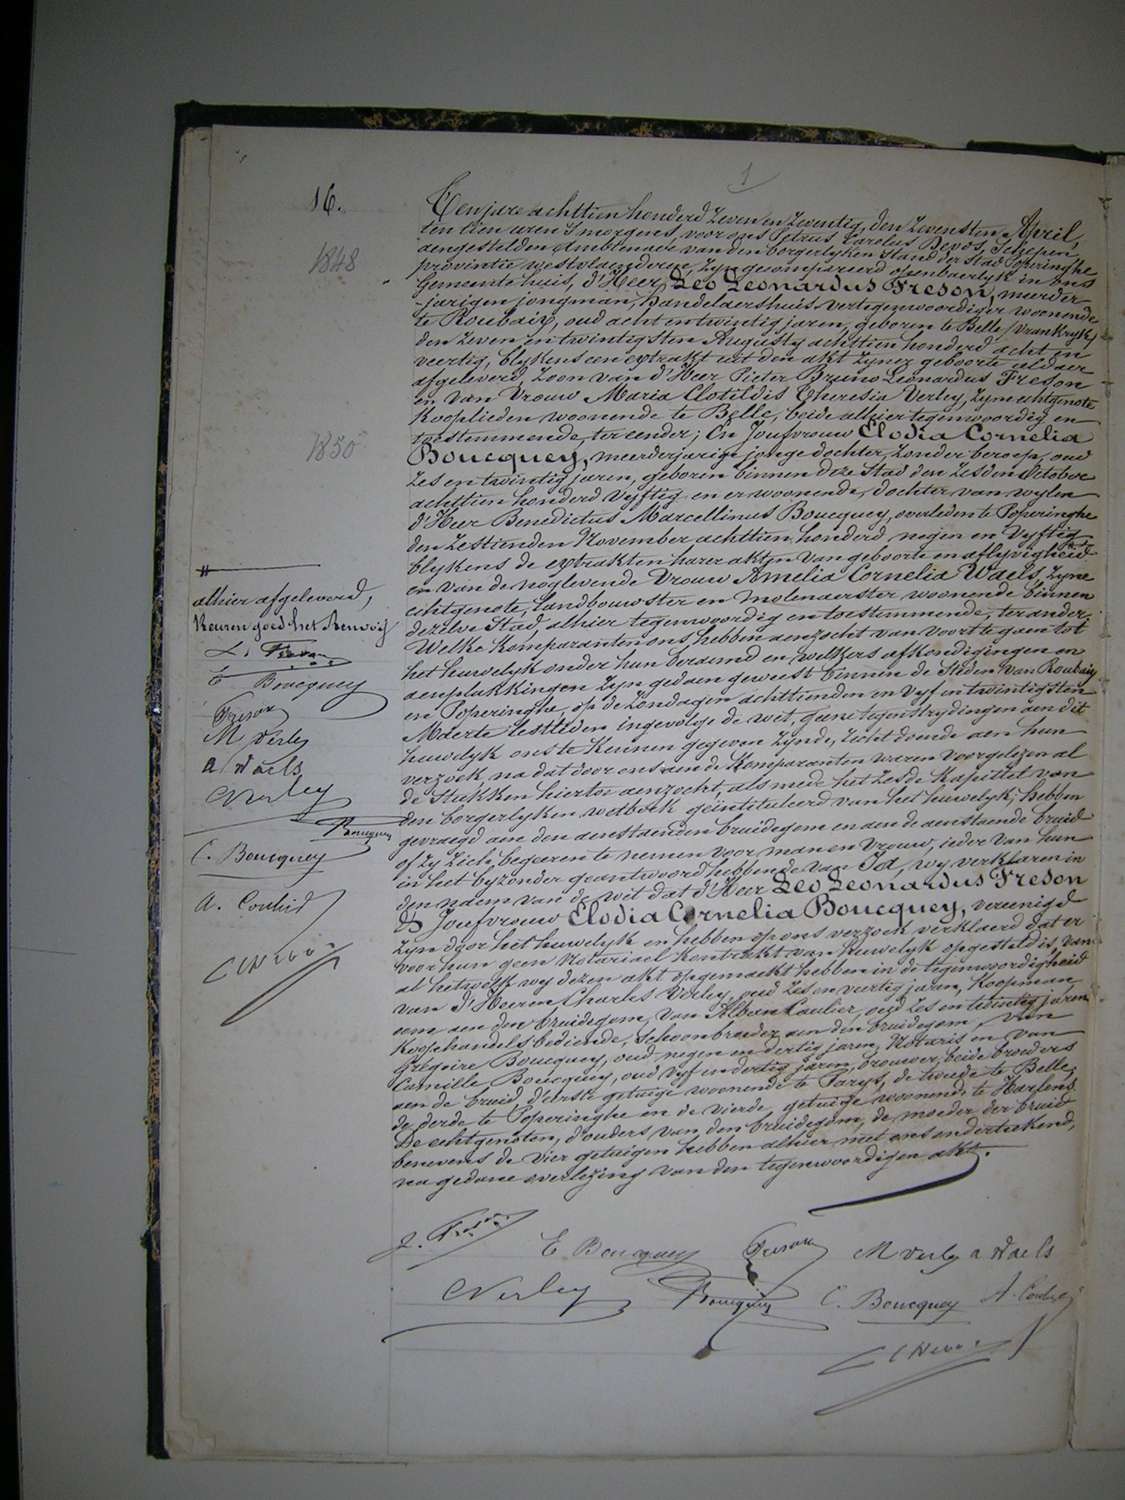 1
16.
Ten jare achttien honderd zeven en zeventig, den zevensten April,
ten tien uren s'morgens, voor ons Petrus Carolus Devos, Schepen,
aengestelden Ambtenaer van den borgerlyken stand der stad Poperinghe
1848
provintie westvlaenderen, zyn gecompareerd openbaerlyk in ons
Gemeentehuis, d'Heer Leo Leonardus Freson, meerder-
-jarigen jongman, handelaershuis vertegenwoordiger woonende
te Roubaix, oud acht en twintig jaren, geboren te Belle (Vrankryk)
den zeven en twintigsten Augusty achttien honderd acht en
veertig, blykens een extrakt uit den akt zyner geboorte aldaer
afgeleverd, Zoon van d'Heer Pieter Bruno Leonardus Freson
en van Vrouw Maria Clotildis Theresia Verley, zyne echtgenote
Kooplieden woonende te Belle, beide alhier tegenwoordig en
toestemmende, ter eender; En Joufvrouw Elodia Cornelia
1850
Boucquey, meerderjarige jonge dochter, zonder beroep, oud
zes en twintig jaren, geboren binnen deze Stad den zesden October
achttien honderd vyftig en er woonende, dochter van wylen
d'Heer Benedictus Marcellinus Boucquey, overleden te Poperinghe
den zestienden November achttien honderd negen en vyftig
blykens de extrakten harer akten van geboorte en aflyvigheid
en van de noglevende Vrouw Amelia Cornelia Waels, zyne
echtgenote, landbouwster en molenaerster woonende binnen
dezelve Stad, alhier tegenwoordig en toestemmende, ter ander;
Welke komparanten ons hebben aenzocht van voort te gaen tot
het huwelyk onder hun beraemd en welkers afkondigingen en
aenplakkingen zyn gedaen geweest binnen de Steden van Roubaix
en Poperinghe, op de Zondagen achttienden en vyf en twintigsten
Maerte lestleden ingevolge de wet, geene tegenstrydingen aen dit
huwelyk ons te kennen gegeven zynde, recht doende aen hun
verzoek na dat door ons aen de komparanten waren voorgelezen al
de stukken hiertoe aenzocht, als mede het zesde Kapittel van
den borgerlyken wetboek geïntituleerd van het huwelyk; hebben
gevraegd aen den aenstaenden bruidegom en aen de aenstaende bruid
of zy zich begeeren te nemen voor man en vrouw, ieder van hun
in het byzonder geantwoord hebbende van Ja, wy verklaren in
den naem van de wet dat d'Heer Leo Leonardus Freson
& Joufvrouw Elodia Cornelia Boucquey, vereenigd
zyn door het huwelyk en hebben op ons verzoek verklaerd dat er
voor hun geen Notariael kontrakt van huwelyk opgesteld is, van
al hetwelk wy dezen akt opgemaekt hebben in de tegenwoordigheid
van d'Heeren Charles Verley, oud zes en veertig jaren, Koopman
oom aen den bruidegom, van Alban Caulier, oud zes en twintig jaren
Koophandels bediende, schoonbroeder aen den bruidegom, van
Grégoire Boucquey, oud negen en dertig jaren, Notaris en van
Camille Boucquey, oud vyf en dertig jaren, brouwer, beide broeders
aen de bruid, d'eerste getuige woonende te Parys, de tweede te Belle,
de derde te Poperinghe en de vierde getuige woonende te
De echtgenoten, d'ouders van den bruidegom, de moeder der bruid
benevens de vier getuigen hebben alhier met ons onderteekend,
na gedane overlezing van den tegenwoordigen akt.
alhier afgeleverd,
Keuren goed het Renvoij
L. Freson
E Boucquey
Freson
M Verley
a Waels
C Verley
Boucquey
C. Boucquey
A.
C Devos
L. Freson E Boucquey Freson M Verley a Waels
C Verley Boucquey C. Boucquey A.
C Devos